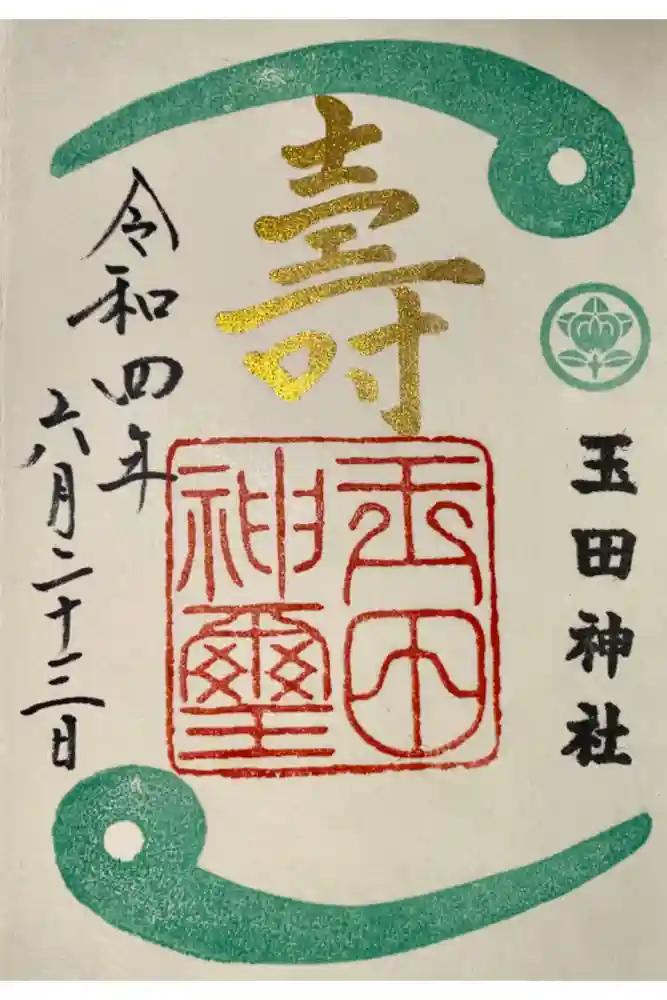 玉田神社
壽
玉田
神璽
令和四年
六月二十三日